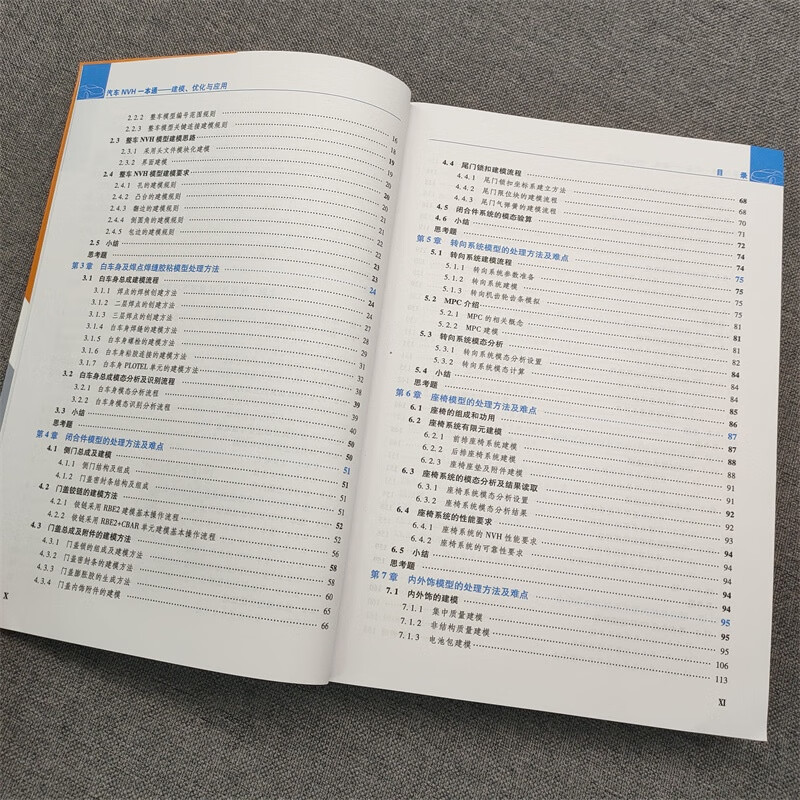 汽车 NVH 一本通——建模、优化与应用
2.2.2 整车模型编号范围规则 16
2.2.3 整车模型关键连接建模规则 18
2.3 整车 NVH 模型建模思路 19
2.3.1 采用头文件模块化建模 19
2.3.2 界面建模 20
2.4 整车 NVH 模型建模要求 20
2.4.1 孔的建模规则
2.4.2 凸台的建模规则
2.4.3 翻边的建模规则
2.4.4 倒圆角的建模规则
2.4.5 包边的建模规则
2.5 小结 23
思考题 23
第 3 章 白车身及焊点焊缝胶粘模型处理方法 24
3.1 白车身总成建模流程 24
3.1.1 焊点的焊核创建方法
3.1.2 二层焊点的创建方法
3.1.3 三层焊点的创建方法
3.1.4 白车身焊缝的建模方法
3.1.5 白车身螺栓的建模方法
3.1.6 白车身粘胶连接的建模方法
3.1.7 白车身 PLOTEL 单元的建模方法
3.2 白车身总成模态分析及识别流程 39
3.2.1 白车身模态分析流程
3.2.2 白车身模态识别分析流程
3.3 小结 50
思考题 50
第 4 章 闭合件模型的处理方法及难点 51
4.1 侧门总成及建模 51
4.1.1 侧门结构及组成 51
4.1.2 门盖密封条结构及组成 51
4.2 门盖铰链的建模方法 52
4.2.1 铰链采用 RBE2 建模基本操作流程 52
4.2.2 铰链采用 RBE2+CBAR 单元建模基本操作流程 56
4.3 门盖总成及附件的建模方法 58
4.3.1 门盖锁的组成及建模方法 58
4.3.2 门盖密封条的建模方法 60
4.3.3 门盖膨胀胶的生成方法 65
4.3.4 门盖内饰附件的建模 66
X
目 录
4.4 尾门锁扣建模流程 68
4.4.1 尾门锁扣坐标系建立方法 68
4.4.2 尾门限位块的建模流程 70
4.4.3 尾门气弹簧的建模流程 71
4.5 闭合件系统的模态验算 72
4.6 小结 74
思考题 74
第 5 章 转向系统模型的处理方法及难点 75
5.1 转向系统建模流程 75
5.1.1 转向系统参数准备 75
5.1.2 转向系统建模 75
5.1.3 转向机齿轮齿条模拟 81
5.2 MPC 介绍 81
5.2.1 MPC 的相关概念 81
5.2.2 MPC 建模 82
5.3 转向系统模态分析 84
5.3.1 转向系统模态分析设置 84
5.3.2 转向系统模态计算 84
5.4 小结 85
思考题 86
第 6 章 座椅模型的处理方法及难点 87
6.1 座椅的组成和功用 87
6.2 座椅系统有限元建模 88
6.2.1 前排座椅系统建模 88
6.2.2 后排座椅系统建模 91
6.2.3 座椅座垫及附件建模 92
6.3 座椅系统的模态分析及结果读取 92
6.3.1 座椅系统模态分析设置 93
6.3.2 座椅系统模态分析结果 94
6.4 座椅系统的性能要求 94
6.4.1 座椅系统的 NVH 性能要求 94
6.4.2 座椅系统的可靠性要求 94
6.5 小结 94
思考题 94
第 7 章 内外饰模型的处理方法及难点 95
7.1 内外饰的建模 95
7.1.1 集中质量建模 95
7.1.2 非结构质量建模 106
7.1.3 电池包建模 113
XI